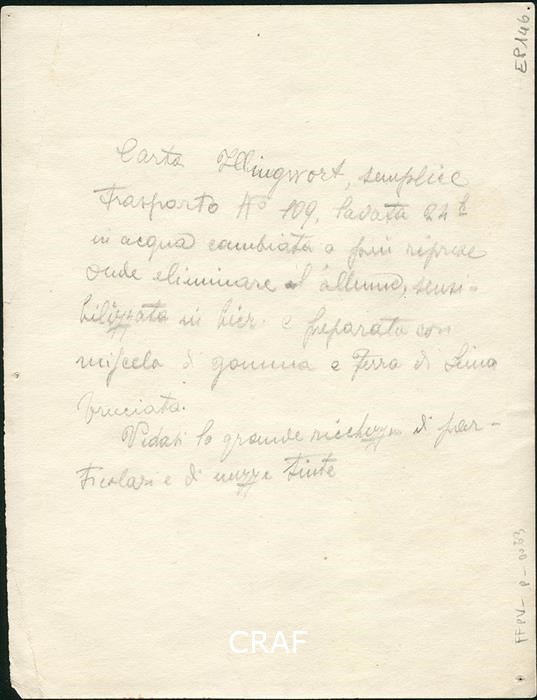 EP146
Carta Illingwort, semplice
Trasporto No 109, lavata 24 h
in acqua cambiata a più riprese
onde eliminare l'allume, sensi-
bilizzata in bicr. e preparata con
miscela di gomma e Terra di Siena
bruciata.
Vedasi la grande ricchezza di par-
ticolari e di mezze tinte
FFPV-P-0033
CRAF